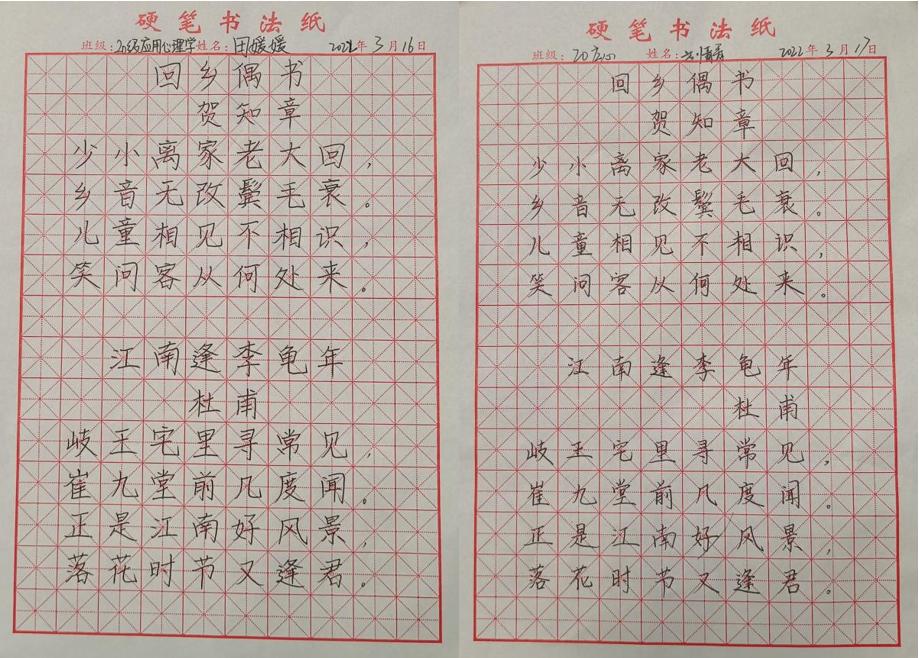 硬笔书法纸
班级：20级应用心理学 姓名：田媛媛 2022年3月16日
回乡偶书
贺知章
少小离家老大回，
乡音无改鬓毛衰。
儿童相见不相识，
笑问客从何处来。
江南逢李龟年
杜甫
岐王宅里寻常见，
崔九堂前几度闻。
正是江南好风景，
落花时节又逢君。
硬笔书法纸
班级：20应心 姓名： 2022年3月17日
回乡偶书
贺知章
少小离家老大回，
乡音无改鬓毛衰。
儿童相见不相识，
笑问客从何处来。
江南逢李龟年
杜甫
岐王宅里寻常见，
崔九堂前几度闻。
正是江南好风景，
落花时节又逢君。